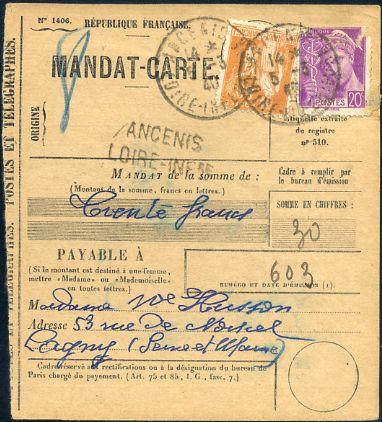 N° 1406.
RÉPUBLIQUE FRANÇAISE.
ANCENIS
14
40
LOIRE-INF
POSTES
20
MANDAT-CARTE
POSTES ET TÉLÉGRAPHES.
ORIGINE
ANCENIS
LOIRE-INFRE
Étiquette extraite
du registre
n° 510.
MANDAT de la somme de :
(Montant de la somme, francs en lettres.)
Cadre à remplir par
le bureau d'émission
Trente francs
SOMME EN CHIFFRES :
30
PAYABLE À
(Si le montant est destiné à une femme,
mettre «Madame» ou «Mademoiselle»
en toutes lettres.)
603
NUMÉRO ET DATE D'ÉMISSION (1).
Madame Vve Husson
Adresse 53 rue de
Lagny (Seine et Marne)
Cadre réservé aux rectifications ou à la désignation du bureau de
Paris chargé du payement. (Art. 75 et 85, I. G., fasc. 7.)